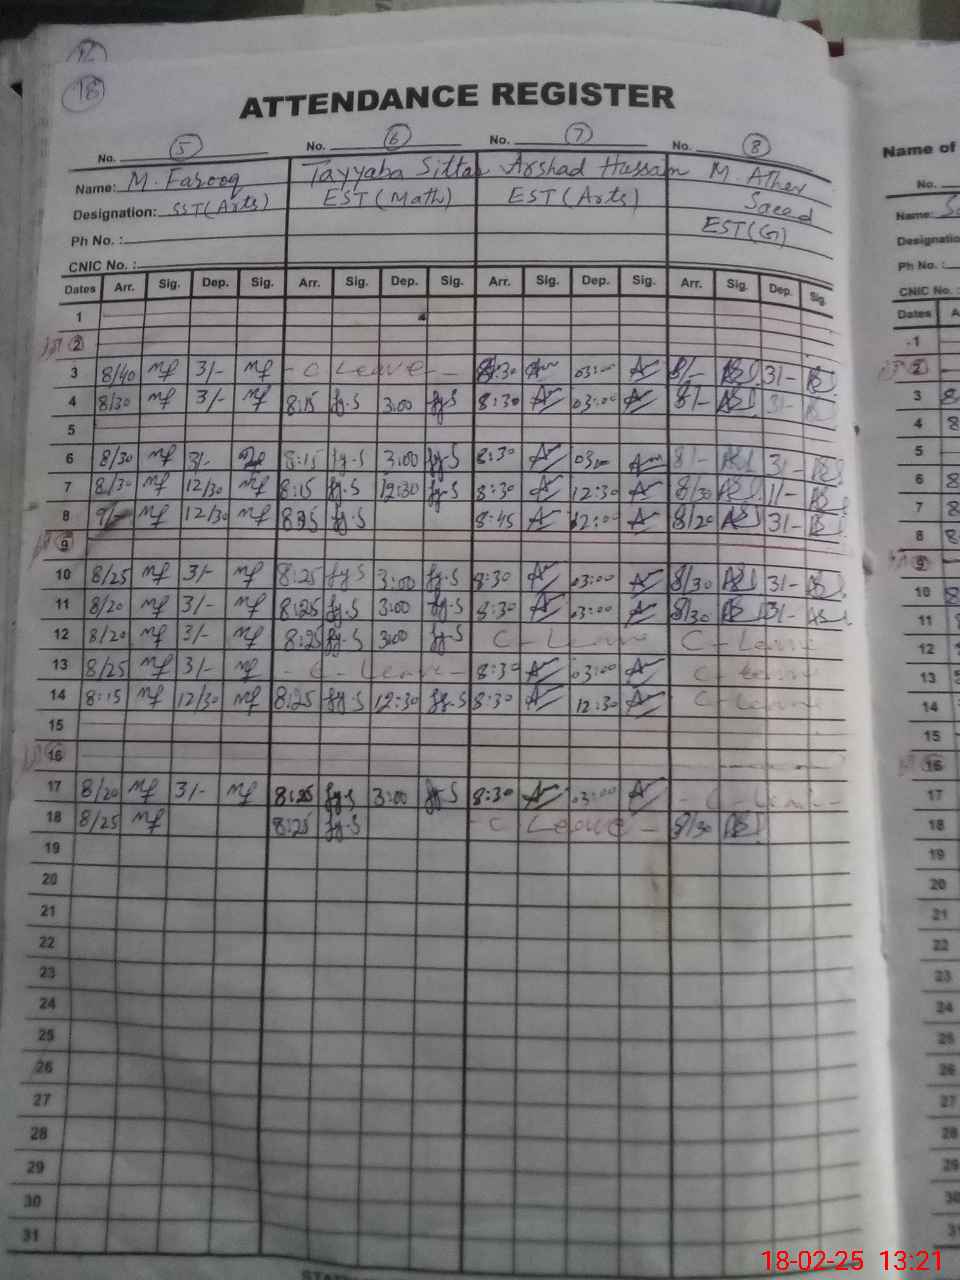 18
ATTENDANCE REGISTER
No. 5 No. 6 No. 7 No. 8
Name: M. Farooq Tayyaba Sittar Arshad Hussain M. Ather Saeed
Designation: SST (Arts) EST (Math) EST (Arts) EST (G)
Ph No. :
CNIC No. :
Dates Arr. Sig. Dep. Sig. Arr. Sig. Dep. Sig. Arr. Sig. Dep. Sig. Arr. Sig. Dep. Sig.
1
2
3 8/40 mf 3/- mf - C Leave - 8:30 03:00 8/- 3/-
4 8/30 mf 3/- mf 8:15 3:00 8:30 03:00 8/- 3/-
5
6 8/30 mf 3/- 8:15 3:00 8:30 8/- 3/-
7 8/30 mf 12/30 mf 8:15 12:30 8:30 12:30 8/30 1/-
8 9/- mf 12/30 mf 8:45 12:00 8/20 3/-
9
10 8/25 mf 3/- mf 8:25 3:00 8:30 03:00 8/30 3/-
11 8/20 mf 3/- mf 8:25 3:00 8:30 03:00 8/30 3/-
12 8/20 mf 3/- mf 8:25 3:00 C - Leave C - Leave
13 8/25 mf 3/- mf - C - Leave - 8:30 03:00 C - Leave
14 8:15 mf 12/30 mf 8:25 12:30 8:30 12:30 C - Leave
15
16
17 8/20 mf 3/- mf 8:25 3:00 8:30 03:00 - C - Leave -
18 8/25 mf 8:25 - C Leave - 8/30
19
20
21
22
23
24
25
26
27
28
29
30
31
Name of
No.
Name:
Designatio
Ph No. :
CNIC No. :
Dates
1
2
3
4
5
6
7
8
9
10
11
12
13
14
15
16
17
18
19
20
21
22
23
24
25
26
27
28
29
30
18-02-25 13:21